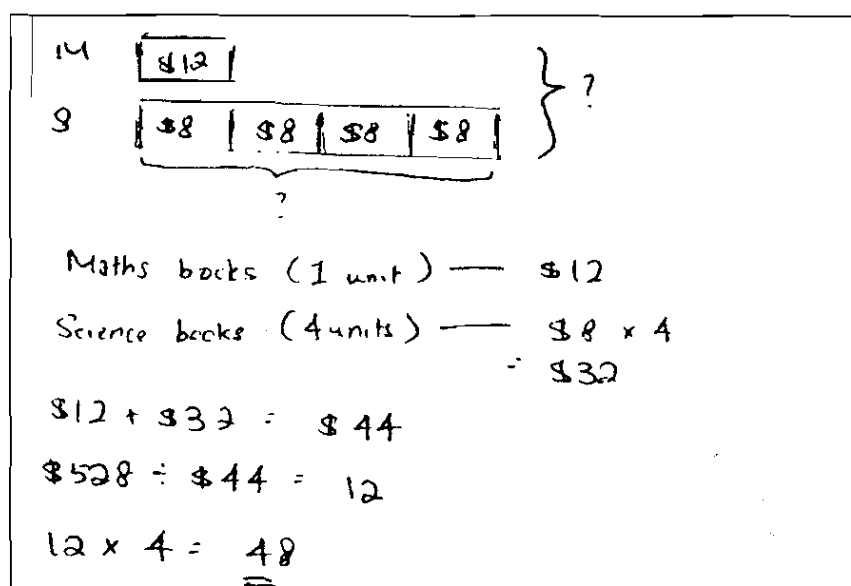 M $12
S $8 $8 $8 $8
?
?
Maths books (1 unit) — $12
Science books (4 units) — $8 × 4
= $32
$12 + $32 = $44
$528 ÷ $44 = 12
12 × 4 = 48